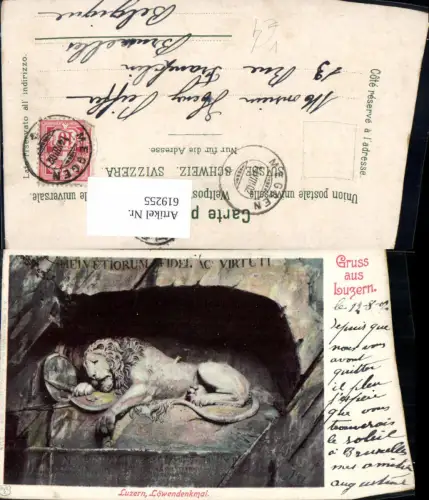 Belgique
Bruxelles
13 Rue Franklin
Monsieur Henry
Côté réservé à l'adresse.
Lato riservato all'indirizzo.
Nur für die Adresse
SUISSE. SCHWEIZ. SVIZZERA
Union postale universelle. Weltpostverein.
Carte postale
MEGGEN
MEGGEN
Artikel Nr.
619255
HELVETIORUM FIDEI AC VIRTUTI
Gruss
aus
Luzern.
le 14-8-02
Depuis que
nous vous
avont
quitter
il pleu
j'espère
que vous
trouverais
le soleil
à Bruxelles
mes amitiés
augustine
Luzern, Löwendenkmal.